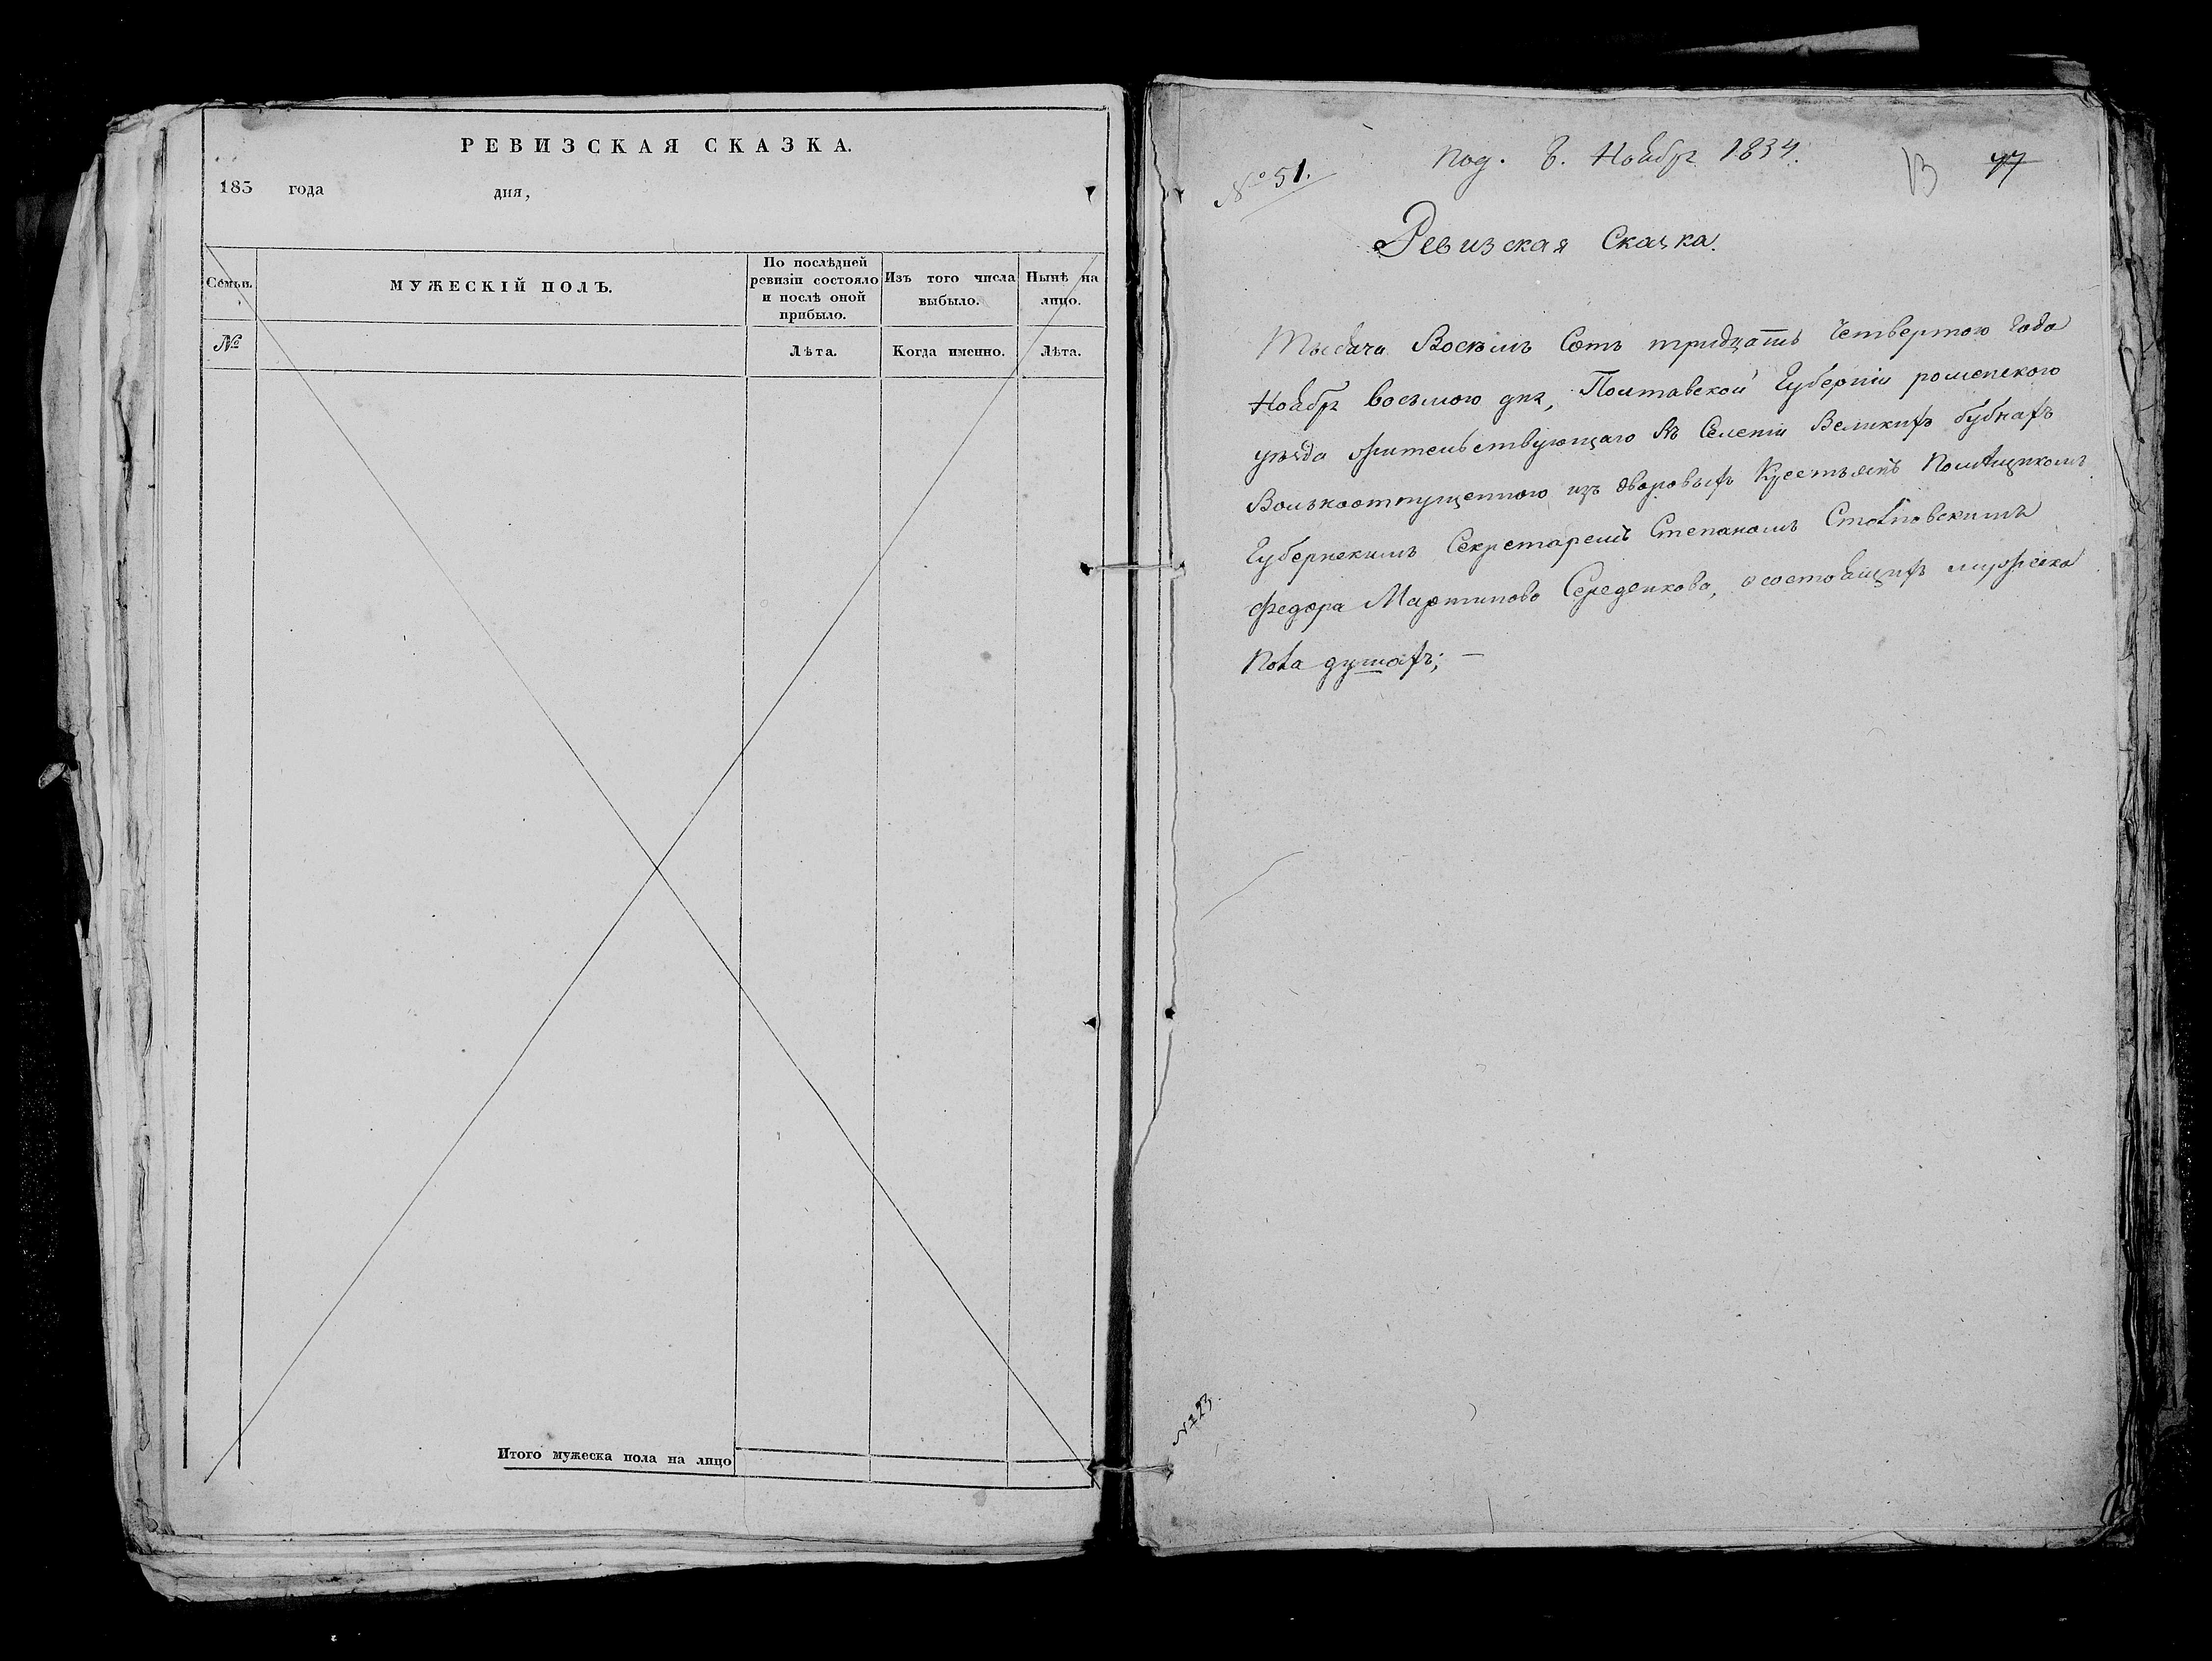 РЕВИЗСКАЯ СКАЗКА.
183 года дня,
Семьи. МУЖЕСКІЙ ПОЛЪ. По послѣдней ревизіи состояло и послѣ оной прибыло. Изъ того числа выбыло. Нынѣ на лицо.
№ Лѣта. Когда именно. Лѣта.
Итого мужеска пола на лицо
№ 51.
Под. 8. Ноября 1834.
Ревизская Сказка.
Тысяча Восемь Сотъ тридцать Четвертого Года
Ноября восьмого дня, Полтавской Губерніи роменского
уѣзда жительствующаго въ Селеніи Великихъ бубнахъ
Вольноотпущенного изъ дворовыхъ Крестьянъ Помѣщикомъ
Губернскимъ Секретаремъ Степаномъ
федора Мартинова Середенкова, о состоящихъ мужеска
Пола душахъ; —
№ 123.